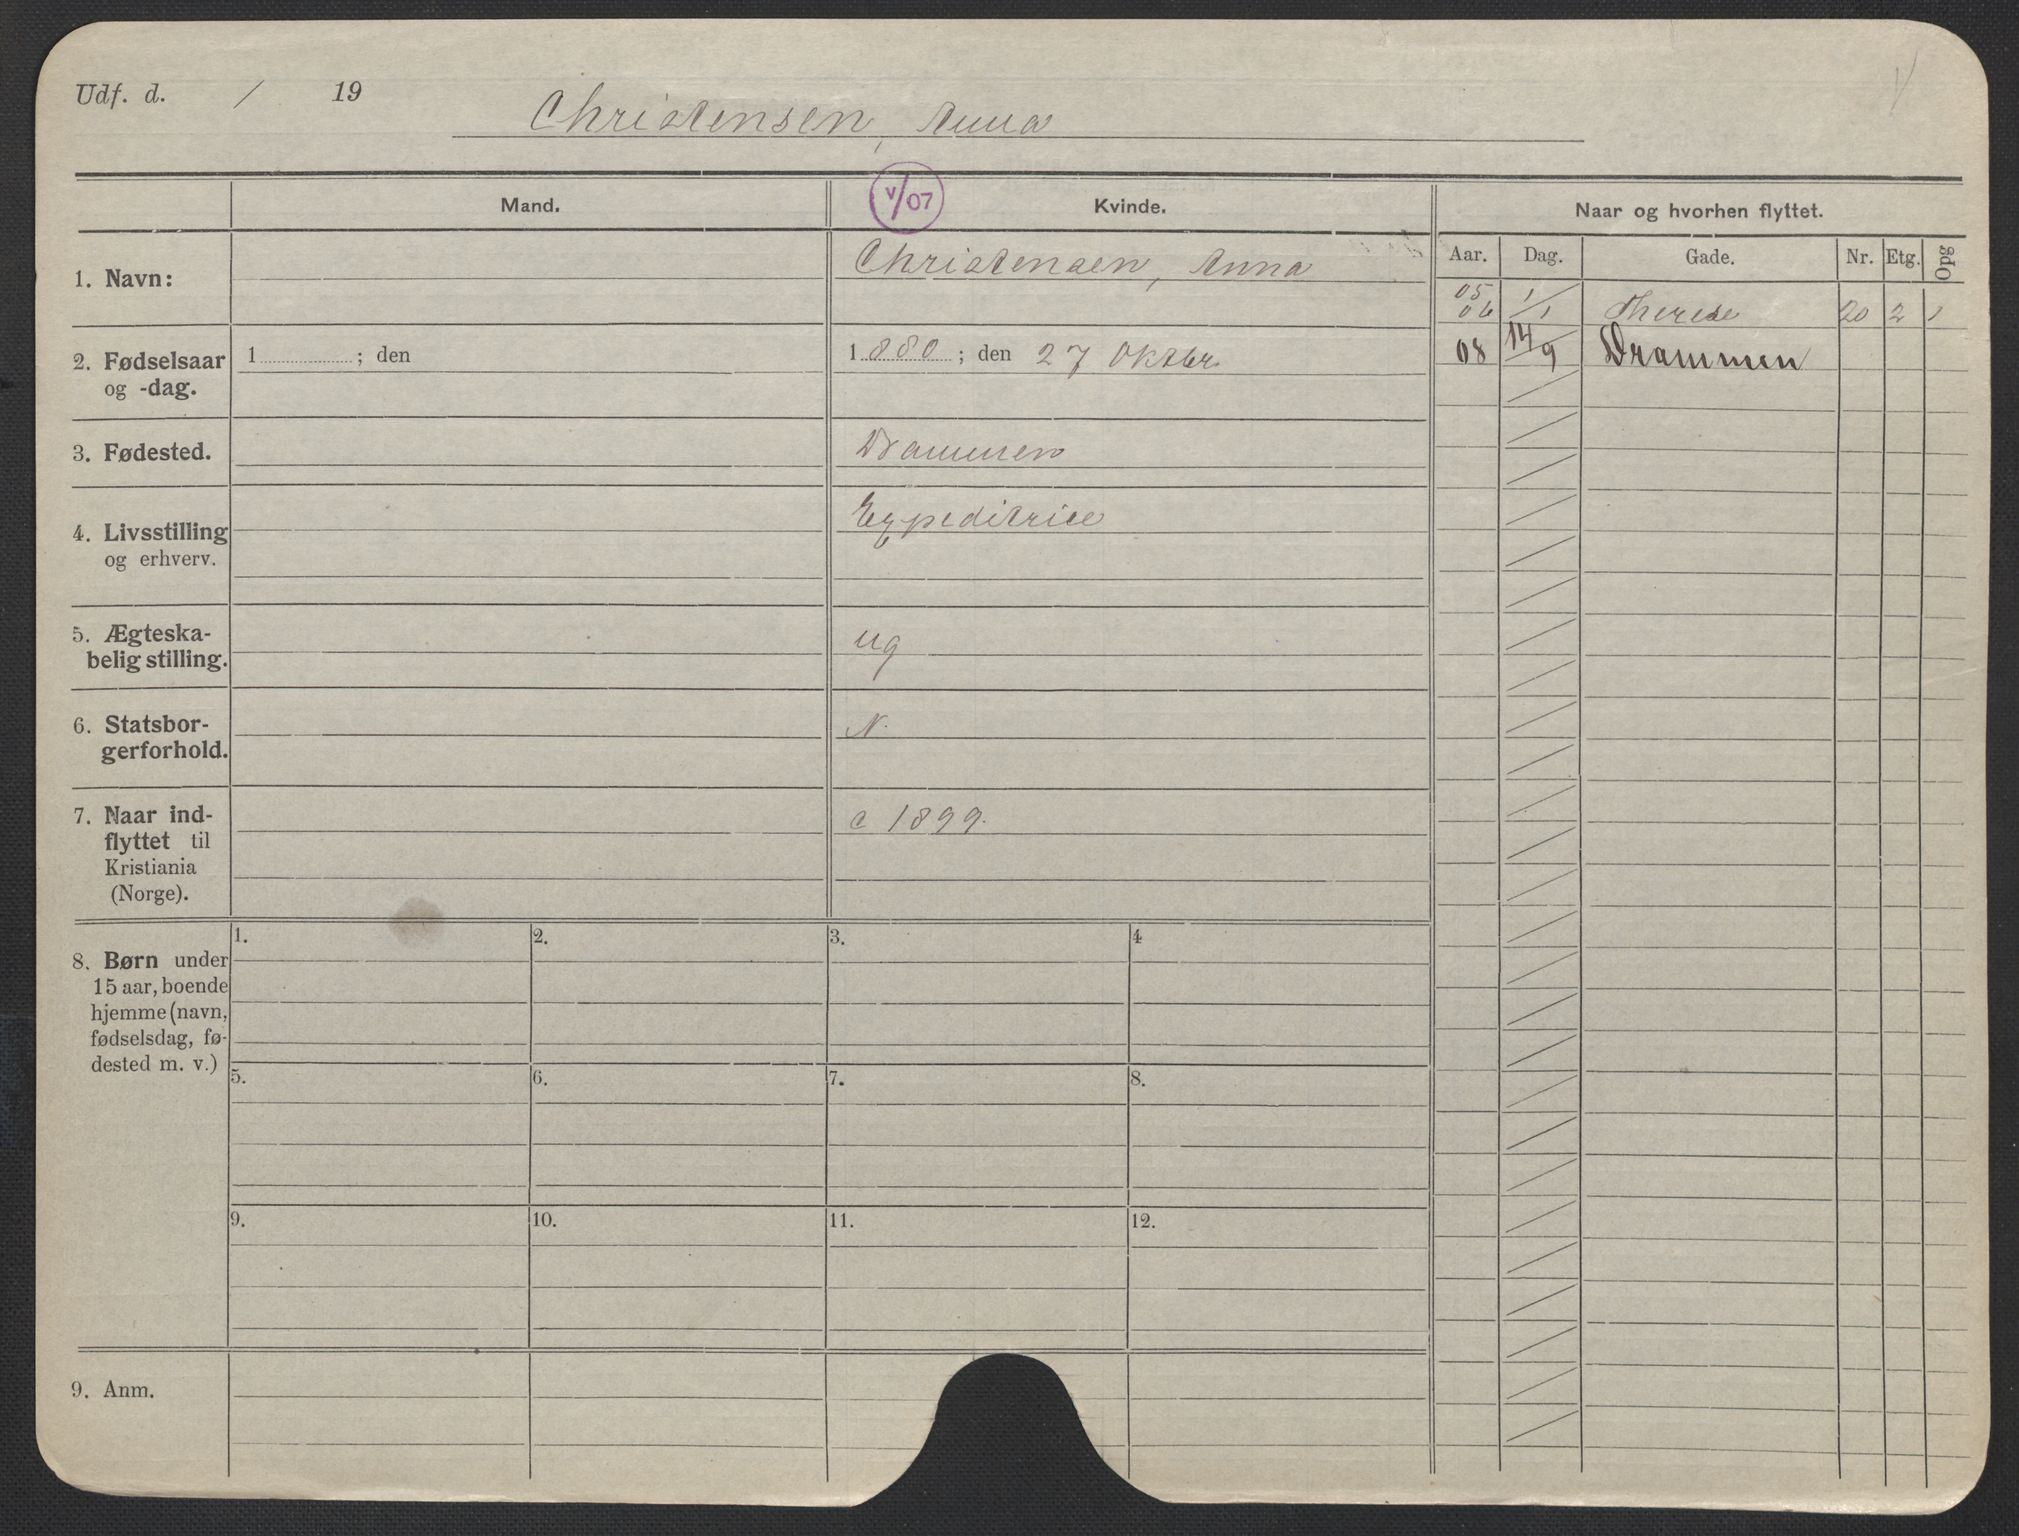 Udf. d. / 19
Christensen, Anna
V/07
Mand.
Kvinde.
Naar og hvorhen flyttet.
Aar. Dag. Gade. Nr. Etg. Opg
1. Navn:
Christensen, Anna
05
06 1/1 Therese 20 2 1
08 14/9 Drammen
2. Fødselsaar
og -dag.
1 ; den
1880 ; den 27 Oktbr.
3. Fødested.
Drammen
4. Livsstilling
og erhverv.
Expeditrice
5. Ægteska-
belig stilling.
ug
6. Statsbor-
gerforhold.
N.
7. Naar ind-
flyttet til
Kristiania
(Norge).
c 1899.
8. Børn under
15 aar, boende
hjemme (navn,
fødselsdag, fø-
dested m. v.)
1. 2. 3. 4
5. 6. 7. 8.
9. 10. 11. 12.
9. Anm.